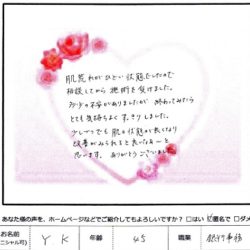 肌荒れがひどい状態でしたので
相談してから施術を受けました。
多少の不安がありましたが 終わってみたら
とても気持ちよく すっきりしました。
クレーターでも 肌の状態が良くなり
改善がみられると良いなぁーと
思います。 ありがとうございました
あなた様の声を、ホームページなどでご紹介してもよろしいですか？ □はい ☑匿名で □ダメ
お名前 Y. K 年齢 45 職業 銀行事務
ニシャル可)